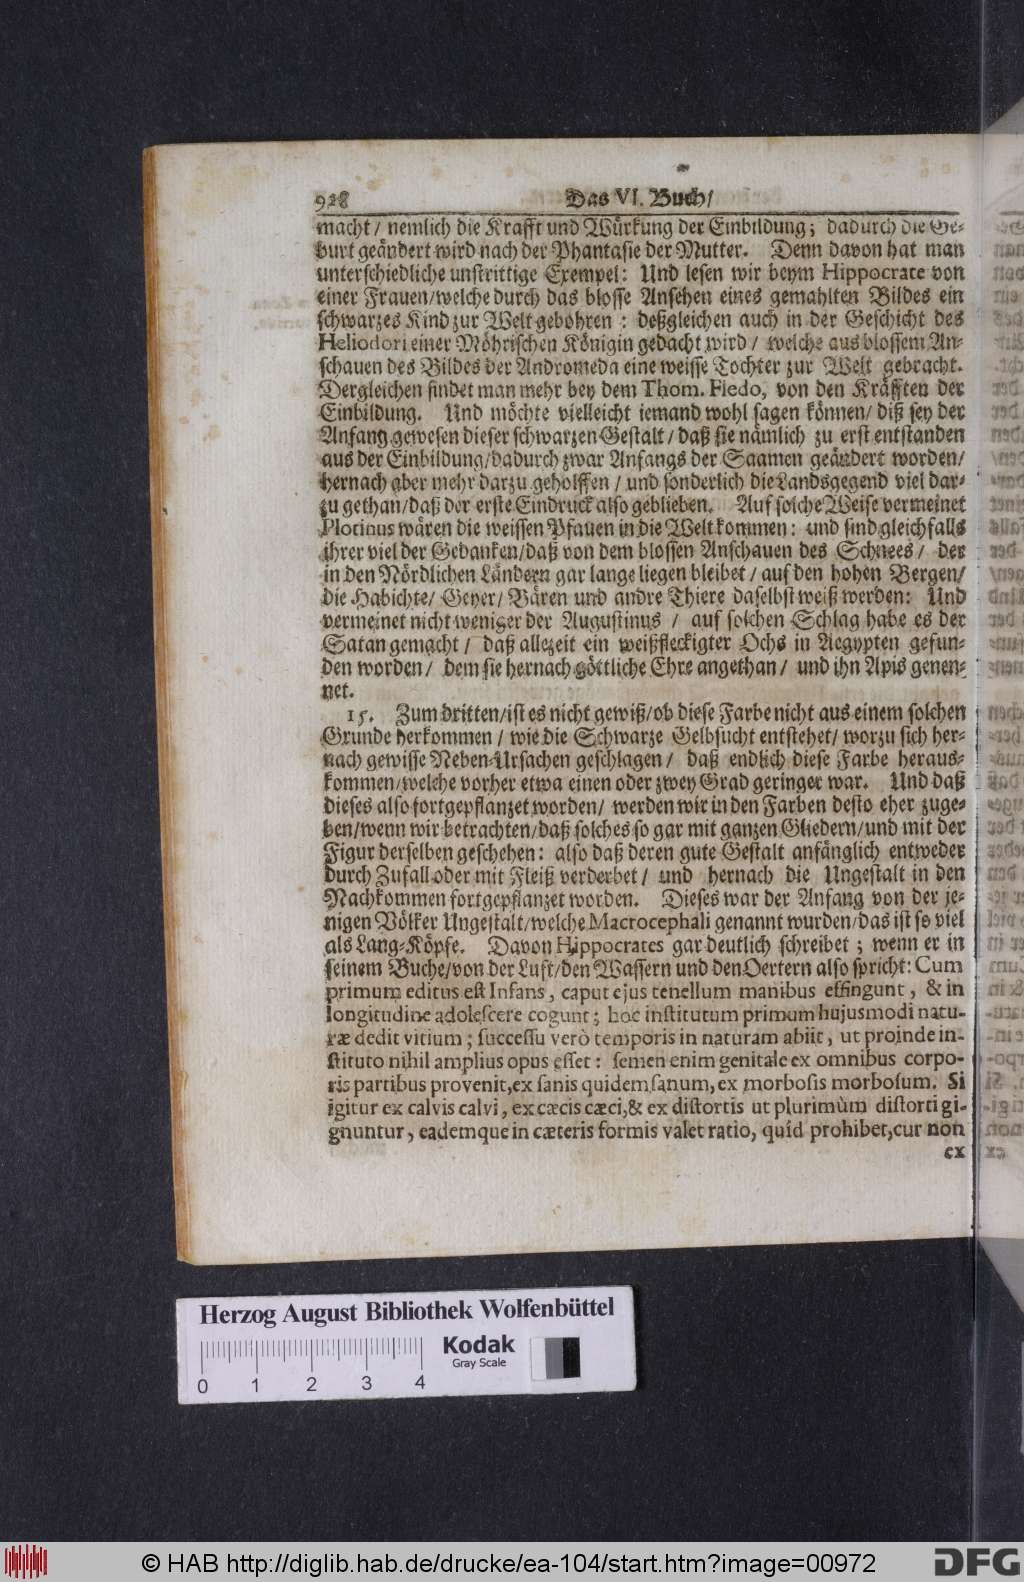 928 Das VI. Buch/
macht / nemlich die Krafft und Würkung der Einbildung; dadurch die Ge-
burt geändert wird nach der Phantasie der Mutter. Denn davon hat man
unterschiedliche unstrittige Exempel: Und lesen wir beym Hippocrate von
einer Frauen/welche durch das blosse Ansehen eines gemahlten Bildes ein
schwarzes Kind zur Welt gebohren : deßgleichen auch in der Geschicht des
Heliodori einer Möhrischen Königin gedacht wird / welche aus blossem An-
schauen des Bildes der Andromeda eine weisse Tochter zur Welt gebracht.
Dergleichen findet man mehr bey dem Thom. Fiedo, von den Kräfften der
Einbildung. Und möchte vielleicht iemand wohl sagen können/ diß sey der
Anfang gewesen dieser schwarzen Gestalt / daß sie nämlich zu erst entstanden
aus der Einbildung/dadurch zwar Anfangs der Saamen geändert worden/
hernach aber mehr darzu geholffen / und sonderlich die Landsgegend viel dar-
zu gethan/daß der erste Eindruck also geblieben. Auf solche Weise vermeinet
Plotinus wären die weissen Pfauen in die Welt kommen: und sind gleichfalls
ihrer viel der Gedanken/daß von dem blossen Anschauen des Schnees / der
in den Nördlichen Ländern gar lange liegen bleibet / auf den hohen Bergen/
die Habichte/ Geyer/ Bären und andre Thiere daselbst weiß werden: Und
vermeinet nicht weniger der Augustinus / auf solchen Schlag habe es der
Satan gemacht / daß allezeit ein weißfleckigter Ochs in Aegypten gefun-
den worden / dem sie hernach göttliche Ehre angethan / und ihn Apis genen-
net.
15. Zum dritten/ist es nicht gewiß/ob diese Farbe nicht aus einem solchen
Grunde herkommen / wie die Schwarze Gelbsucht entstehet/ worzu sich her-
nach gewisse Neben-Ursachen geschlagen / daß endlich diese Farbe heraus-
kommen/welche vorher etwa einen oder zwey Grad geringer war. Und daß
dieses also fortgepflanzet worden/ werden wir in den Farben desto eher zuge-
ben/wenn wir betrachten/daß solches so gar mit ganzen Gliedern/und mit der
Figur derselben geschehen: also daß deren gute Gestalt anfänglich entweder
durch Zufall oder mit Fleiß verderbet / und hernach die Ungestalt in den
Nachkommen fortgepflanzet worden. Dieses war der Anfang von der je-
nigen Völker Ungestalt/welche Macrocephali genannt wurden/das ist so viel
als Lang-Köpfe. Davon Hippocrates gar deutlich schreibet ; wenn er in
seinem Buche/von der Luft/den Wassern und den Oertern also spricht: Cum
primum editus est Infans, caput ejus tenellum manibus effingunt, & in
longitudine adolescere cogunt; hoc institutum primum hujusmodi natu-
ræ dedit vitium; successu verò temporis in naturam abiit, ut proinde in-
stituto nihil amplius opus esset: semen enim genitale ex omnibus corpo-
ris partibus provenit, ex sanis quidem sanum, ex morbosis morbosum. Si
igitur ex calvis calvi, ex cæcis cæci, & ex distortis ut plurimùm distorti gi-
gnuntur, eademque in cæteris formis valet ratio, quid prohibet, cur non
ex
Herzog August Bibliothek Wolfenbüttel
Kodak
Gray Scale
0 1 2 3 4
© HAB http://diglib.hab.de/drucke/ea-104/start.htm?image=00972
DFG